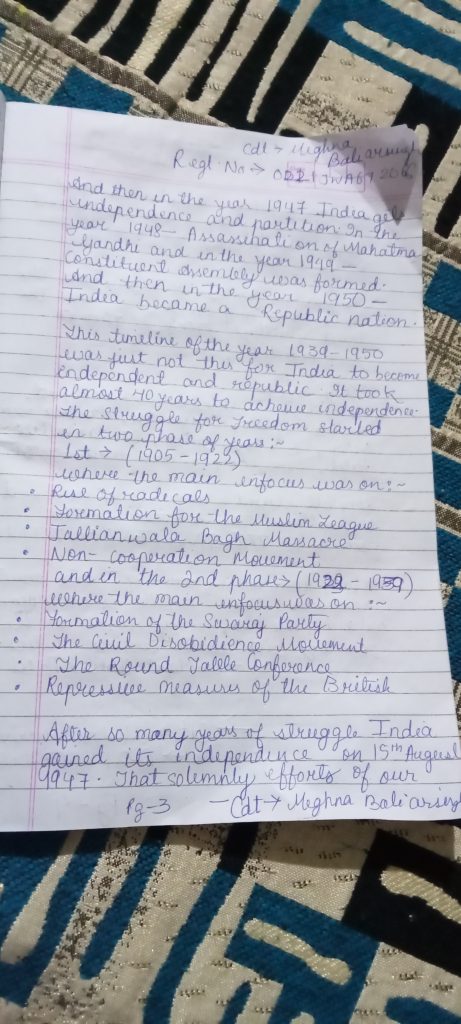 Cdt → Meghna
Baliarsingh
Regl. No →
And then in the year 1947 India gets
independence and partition. In the
year 1948 - Assassination of Mahatma
Gandhi and in the year 1949 -
Constituent Assembly was formed.
And then in the year 1950 -
India became a Republic nation.
This timeline of the year 1939-1950
was just not this for India to become
independent and republic. It took
almost 40 years to achieve independence.
The struggle for freedom started
in two phase of years :~
1st → (1905 - 1922)
where the main infocus was on :~
• Rise of radicals
• Formation for the Muslim League
• Jallianwala Bagh Massacre
• Non-cooperation Movement
and in the 2nd phase → (1922 - 1939)
where the main infocus was on :~
• Formation of the Swaraj Party
• The Civil Disobidience Movement
• The Round Table Conference
• Repressive measures of the British
After so many years of struggle India
gained its independence on 15th August
9947. That solemnly efforts of our
Pg-3 - Cdt → Meghna Baliarsingh